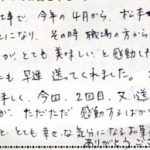 仕事で、今年の4月から、松本
になり、その時職場の方から
が、とても美味しいと感動した
にも早速送ってくれました。
味しく、今回、2回目、又送
が、ただただ感動するばかり
と、とても幸せな気分になるお菓
ありがとうご